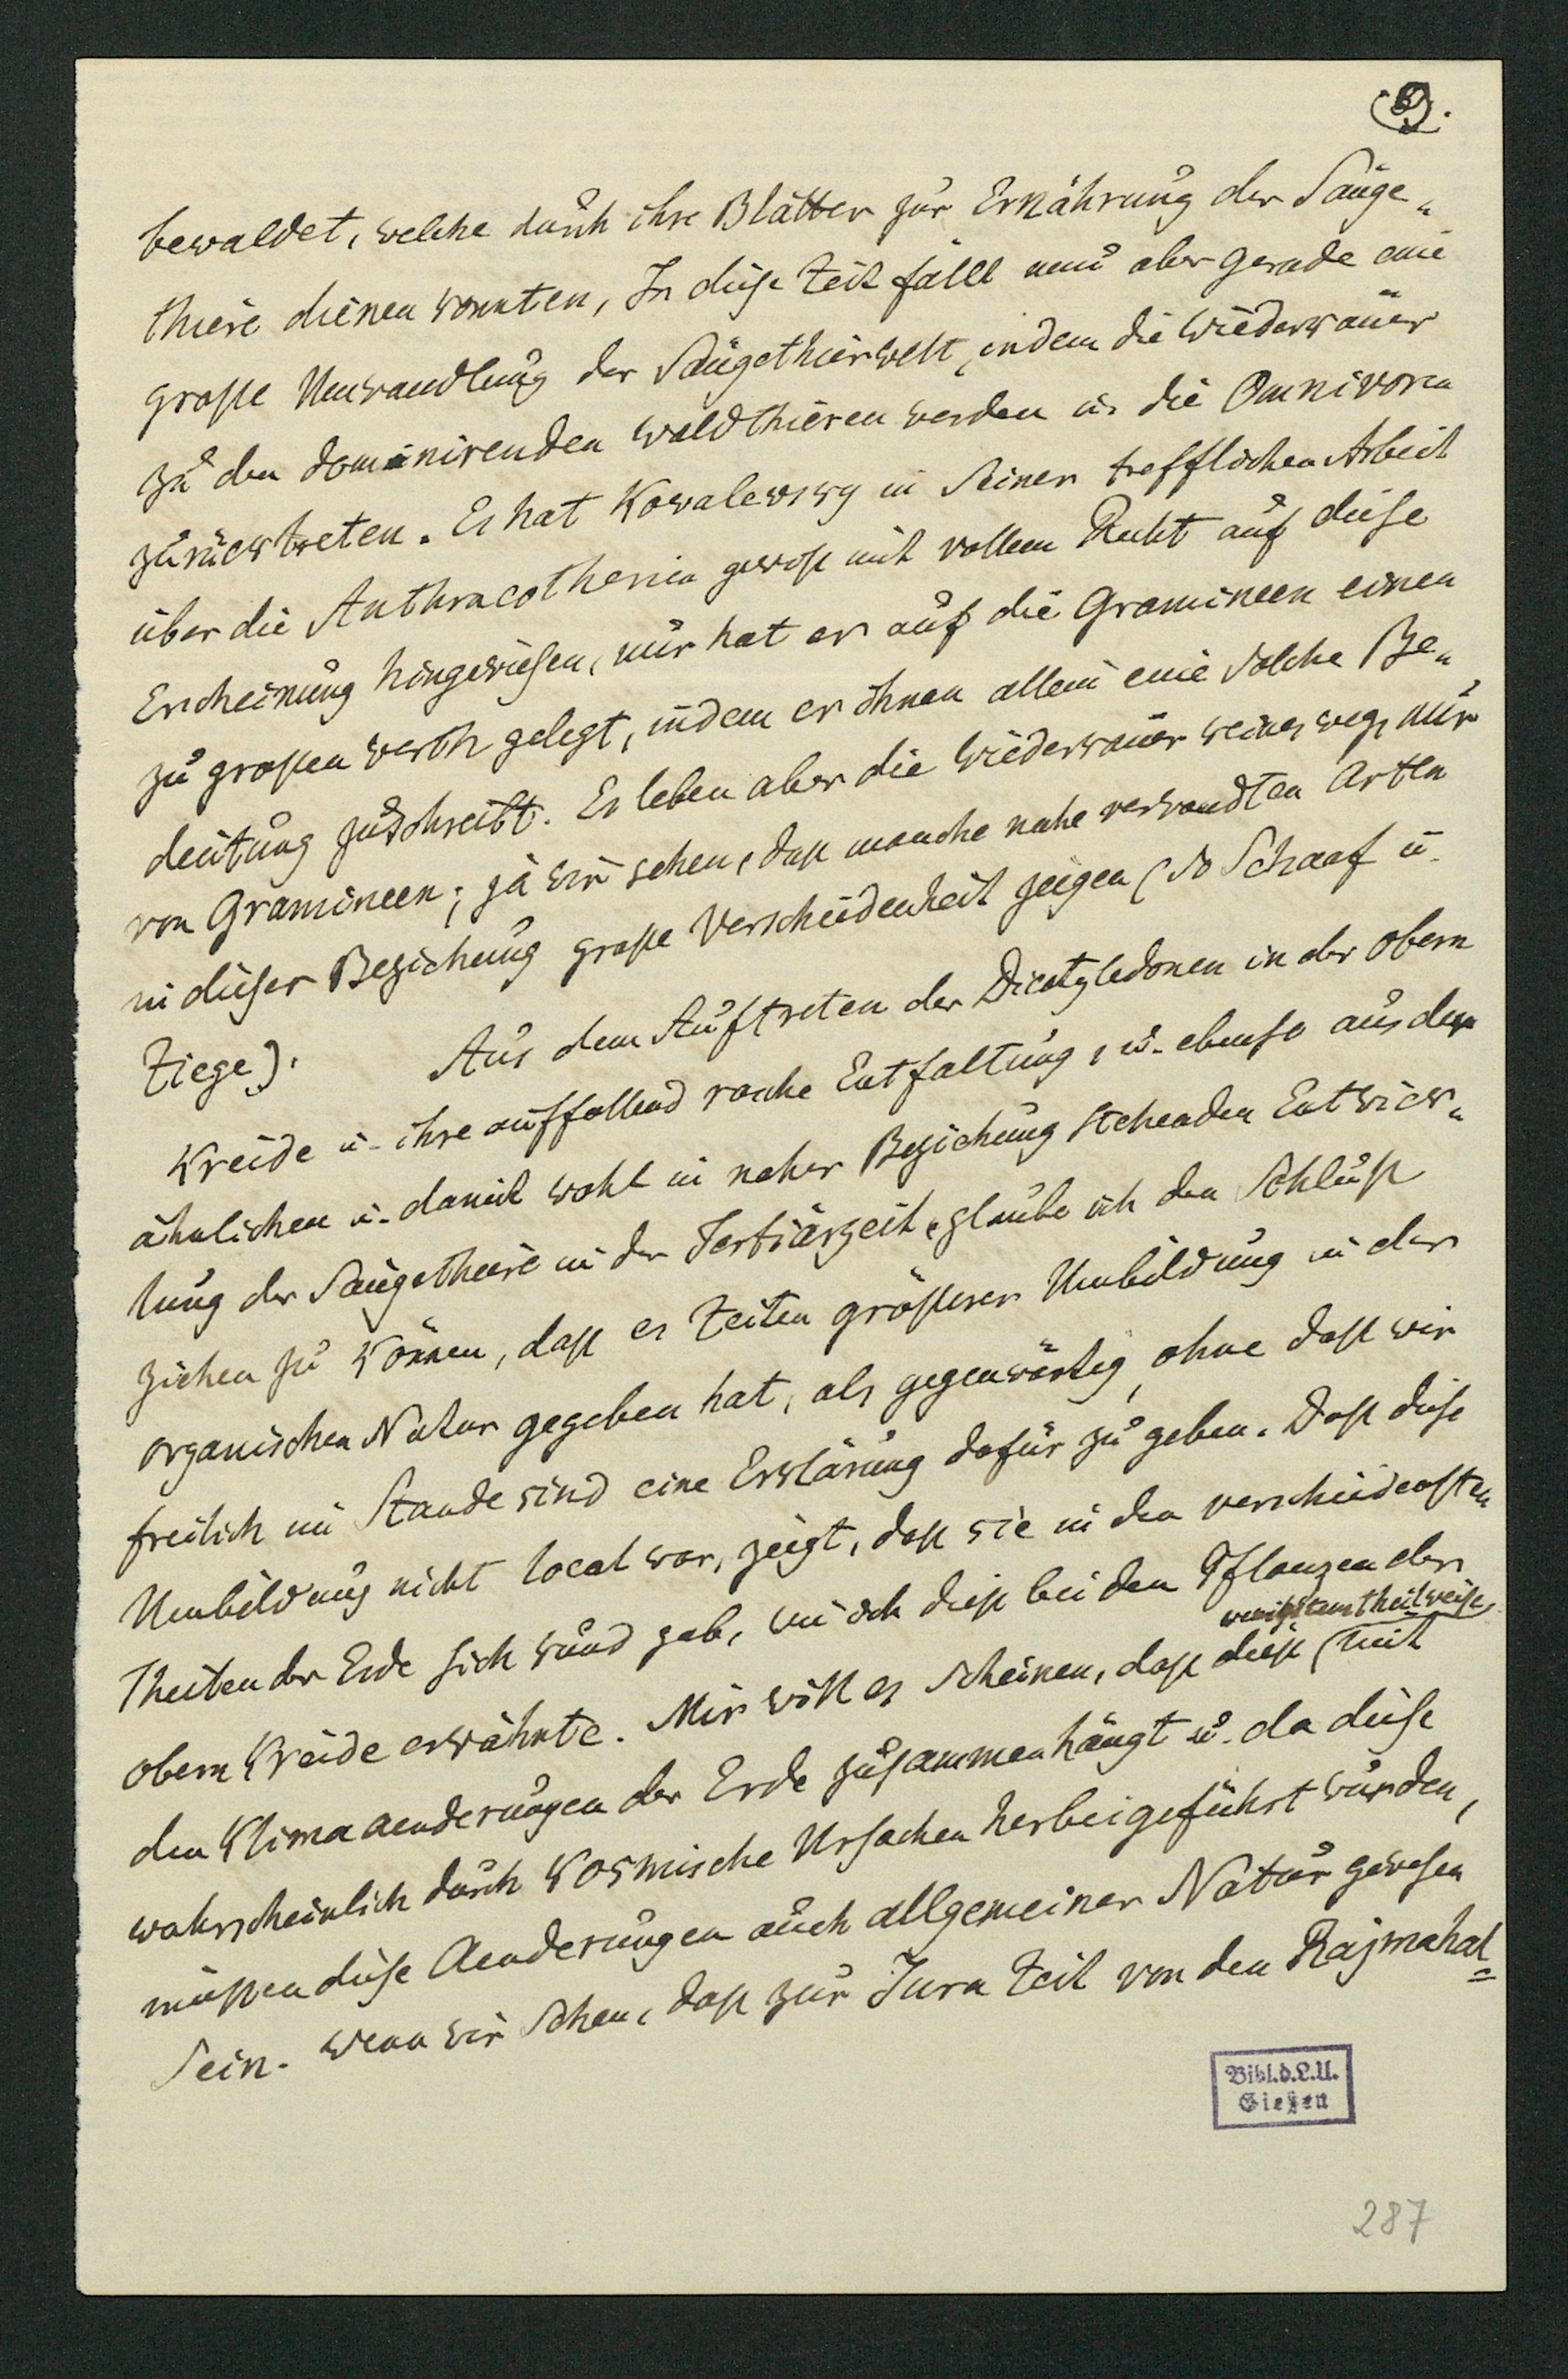 bewaldet, welche durch ihre Blätter zur Ernährung der Säuge-
thiere dienen konnten, In diese Zeit fällt nun aber gerade eine
grosse Umwandlung der Säugethierwelt, indem die Wiederkäuer
zu den dominirenden Waldthieren werden u. die Omnivoren
zurücktreten. Es hat Kowalewsky in seiner trefflichen Arbeit
über die Anthracotherien gewiss mit vollem Recht auf diese
Erscheinung hingewiesen, nur hat er auf die Gramineen einen
zu grossen Werth gelegt, indem er ihnen allein eine solche Be-
deutung zuschreibt. Es leben aber die Wiederkäuer keineswegs nur
von Gramineen; ja wir sehen, dass manche nahe verwandten Arten
in dieser Beziehung grosse Verschiedenheit zeigen (so Schaaf u.
Ziege). Aus dem Auftreten der Dicotyledonen in der obern
Kreide u. ihre auffallend rasche Entfaltung, u. ebenso aus der
ähnlichen u. damit wohl in naher Beziehung stehenden Entwick-
lung der Säugethiere in der Tertiärzeit, glaube ich den Schluss
ziehen zu können, dass es Zeiten grösserer Umbildung in der
organischen Natur gegeben hat, als gegenwärtig, ohne dass wir
freilich im Stande sind eine Erklärung dafür zu geben. Dass diese
Umbildung nicht local war, zeigt, dass sie in den verschiedensten
Theilen der Erde sich kund gab, wie ich diess bei den Pflanzen der
obern Kreide erwähnte. Mir will es scheinen, dass diess (mit
wenigstens theilweise
den Klimaaenderungen der Erde zusammenhängt u. da diese
wahrscheinlich durch kosmische Ursachen herbeigeführt wurden,
müssen diese Aenderungen auch allgemeiner Natur gewesen
sein. Wenn wir sehen, dass zur Jura Zeit von den Rajmahal=
Bibl.d.L.U.
Gießen
287